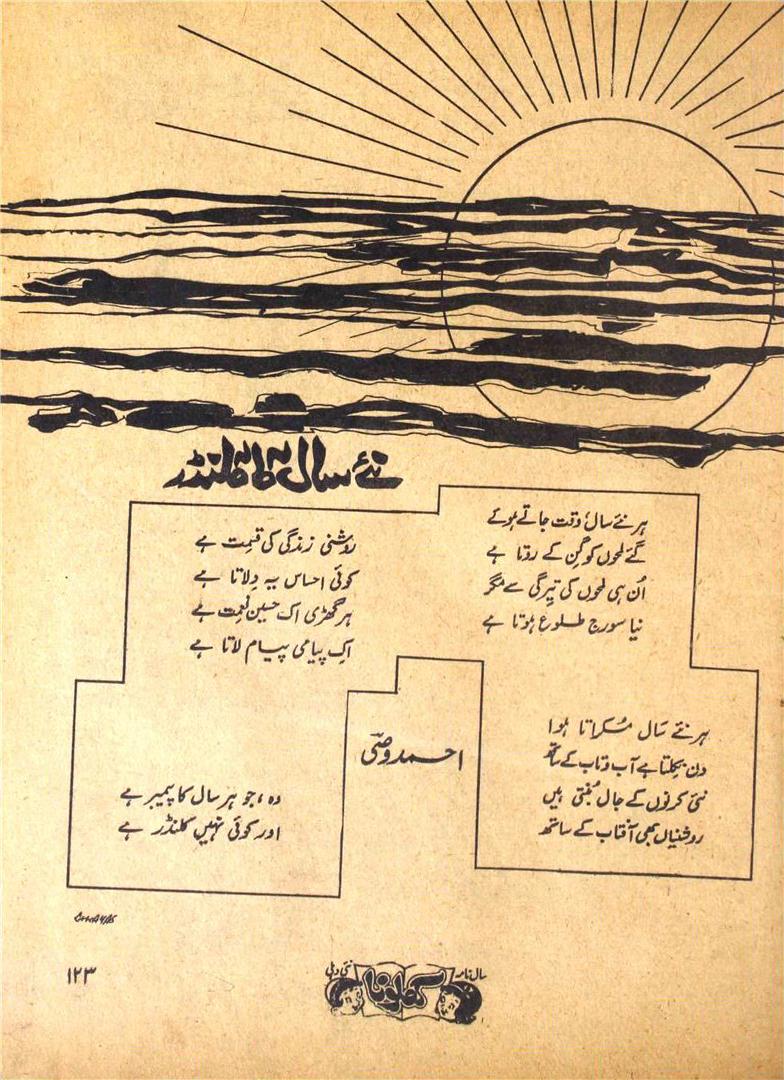 نئے سال کا کلنڈر
ہر نئے سال، وقت جاتے ہوئے
گئے لمحوں کو گن کے روتا ہے
اُن ہی لمحوں کی تیرگی سے مگر
نیا سورج طلوع ہوتا ہے
ہر نئے سال مُسکراتا ہوا
دن نکلتا ہے آب و تاب کے ساتھ
نئی کرنوں کے جال بُنتی ہیں
روشنیاں بھی آفتاب کے ساتھ
روشنی زندگی کی قیمت ہے
کوئی احساس یہ دِلاتا ہے
ہر گھڑی اک حسین نعمت ہے
اک پیامی پیام لاتا ہے
وہ، جو ہر سال کا پیمبر ہے
اور کوئی نہیں کلنڈر ہے
احمد وصی
سال نامہ کھلونا نئی دہلی
۱۲۳